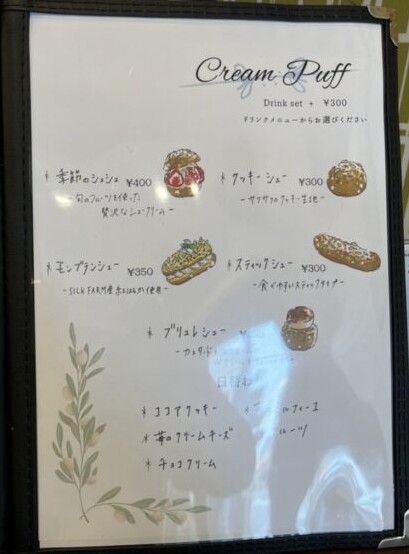 Cream Puff
Drink set + ¥300
ドリンクメニューからお選びください
* 季節のシュシュ ¥400
-旬のフルーツを使った
贅沢なシュークリーム-
* クッキーシュー ¥300
-サクサクのクッキー生地-
* モンブランシュー ¥350
* スティックシュー ¥300
-食べやすいスティックタイプ-
* ブリュレシュー
* ココアクッキー
* 苺のクリームチーズ
* チョコクリーム